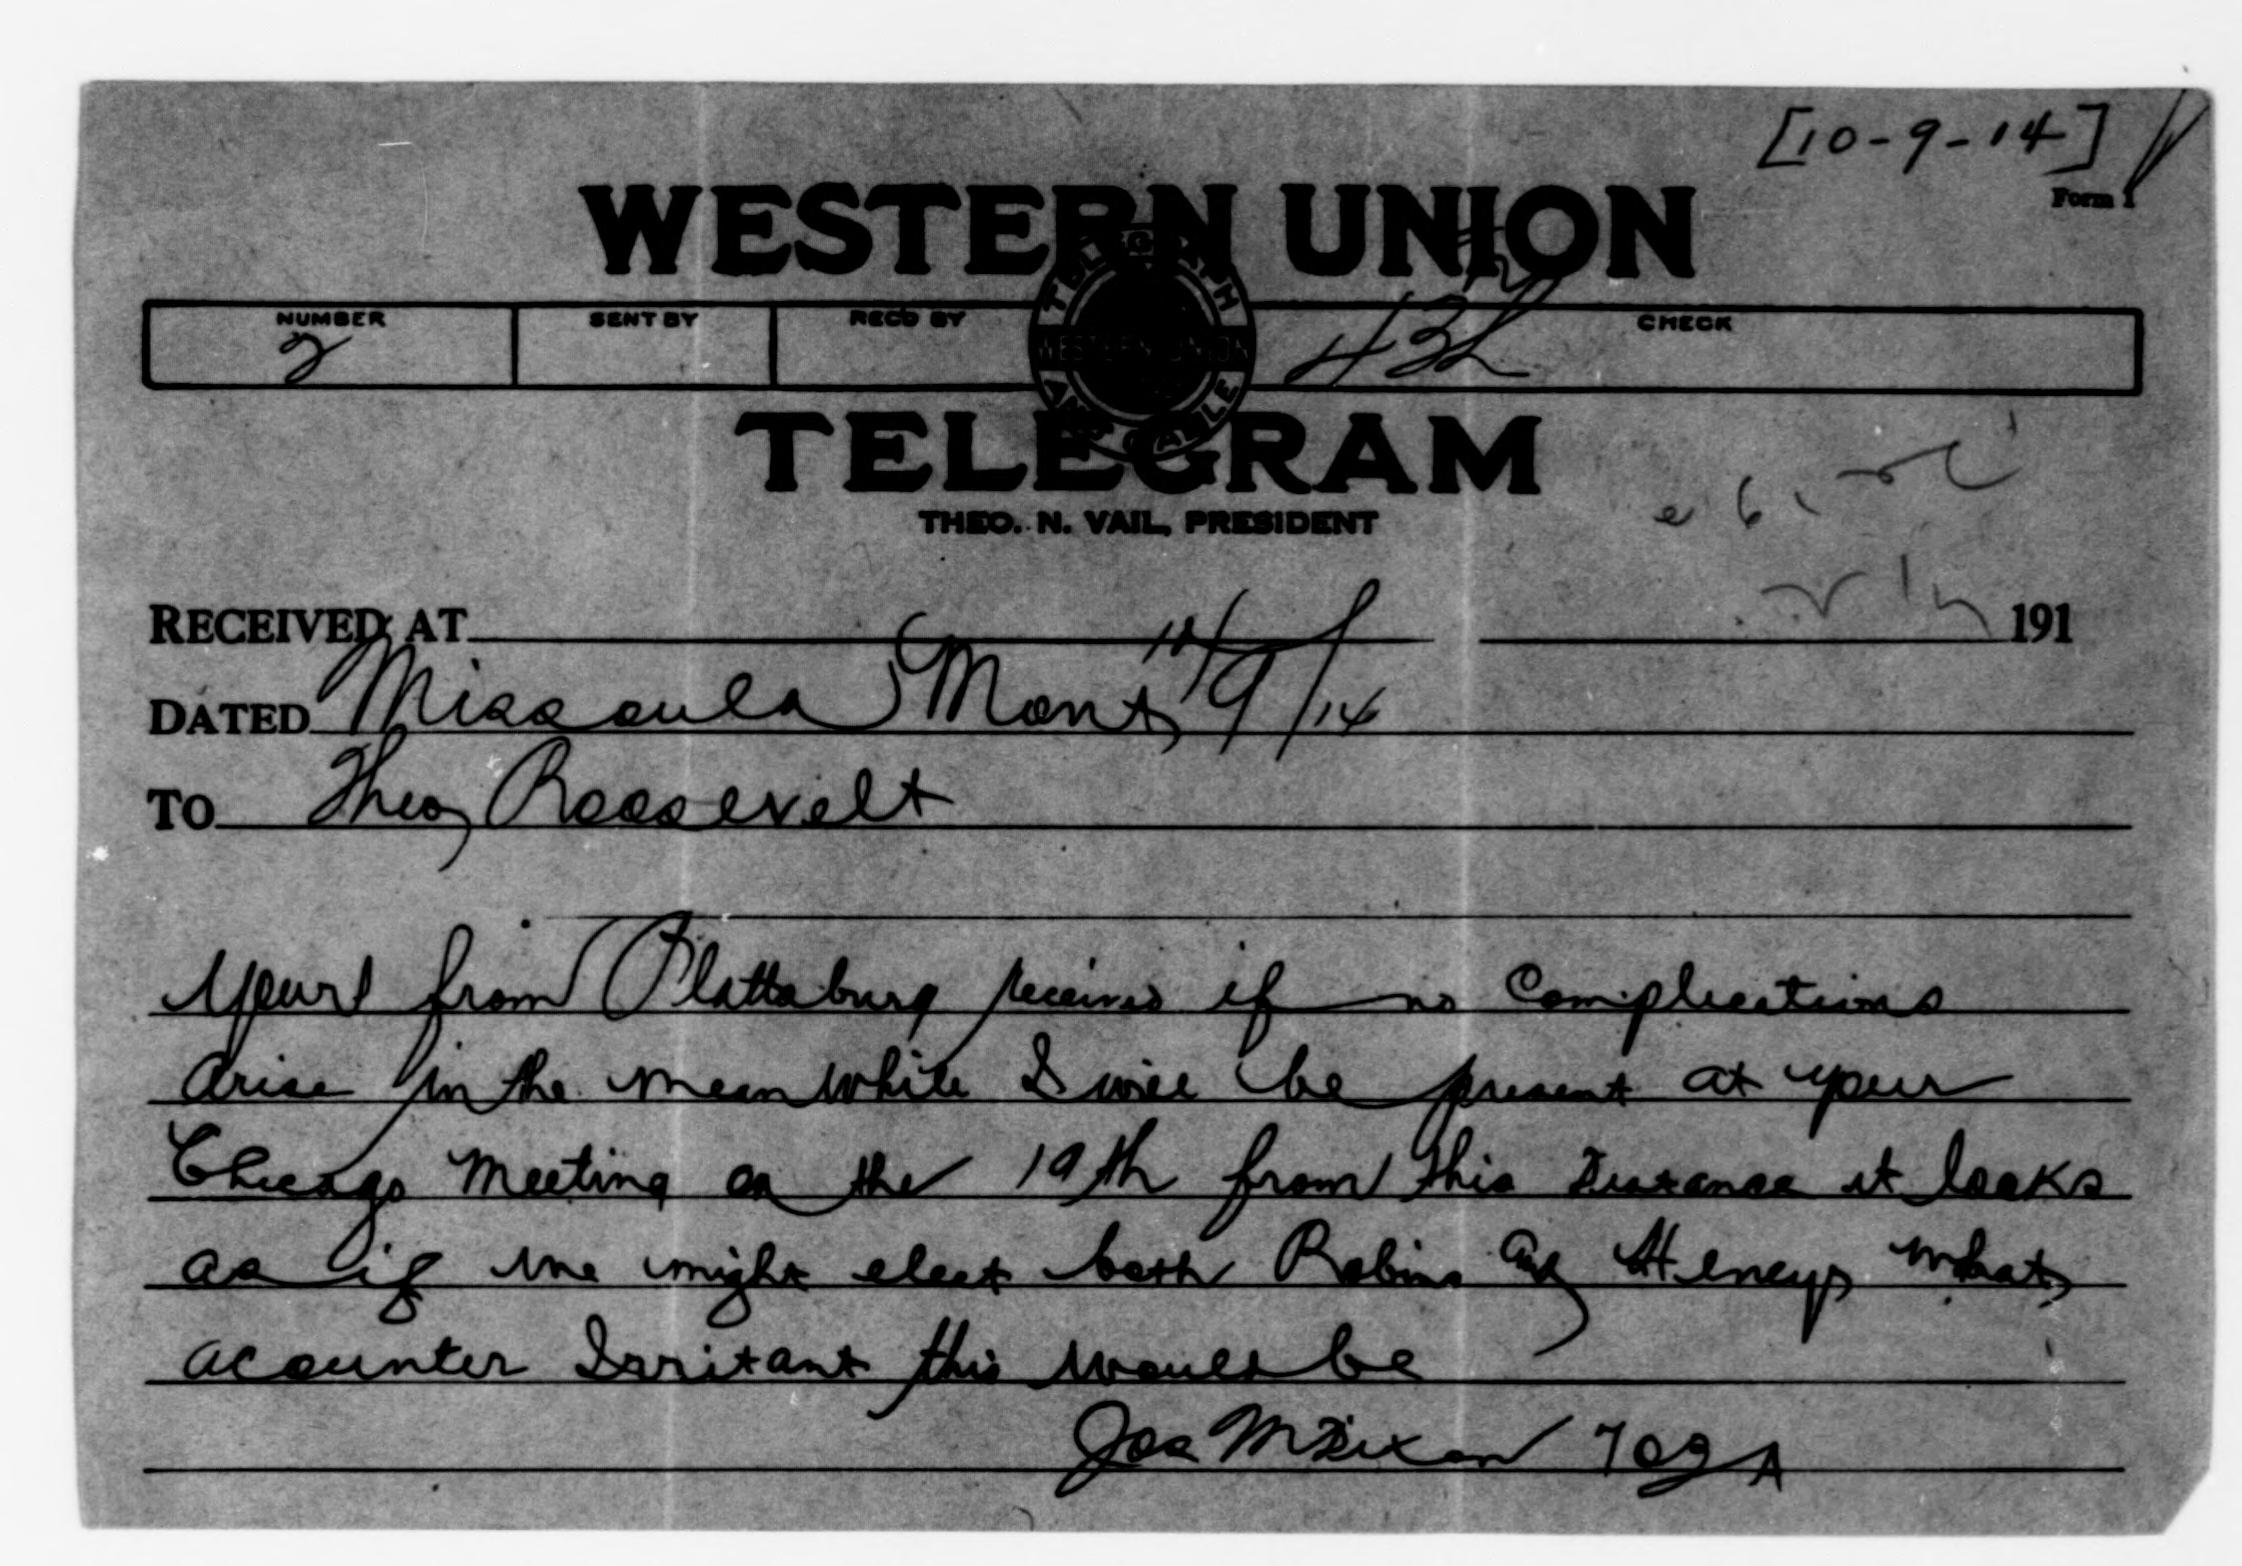 [10-9-14]
Form 1
WESTERN UNION
NUMBER SENT BY REC'D BY CHECK
2
TELEGRAPH AND CABLE
WESTERN UNION
TELEGRAM
THEO. N. VAIL, PRESIDENT
RECEIVED AT 191
DATED Missoula Mont 10/9/14
TO Theo, Roosevelt
Yours from Plattsburg received if no complications
arise in the mean while I will be present at your
Chicago meeting on the 19th from this distance it looks
as if we might elect both Robins and Heney what
a counter Irritant this would be
Jos M Dixon 709A